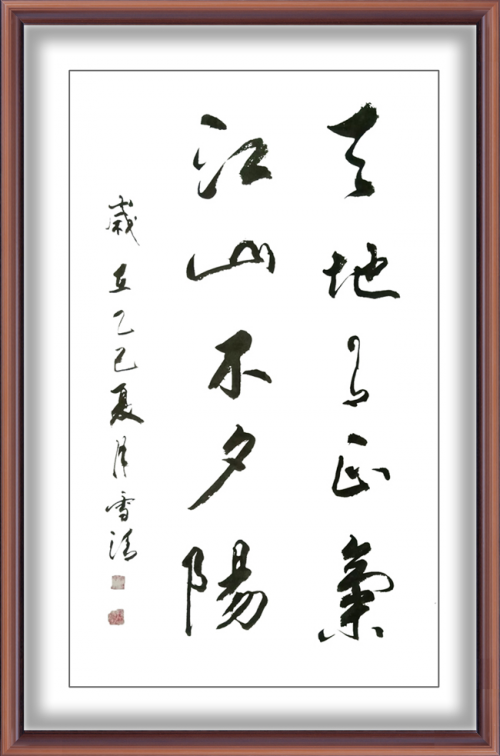 天地有正氣
江山不夕陽
歲在乙巳夏月雪涛